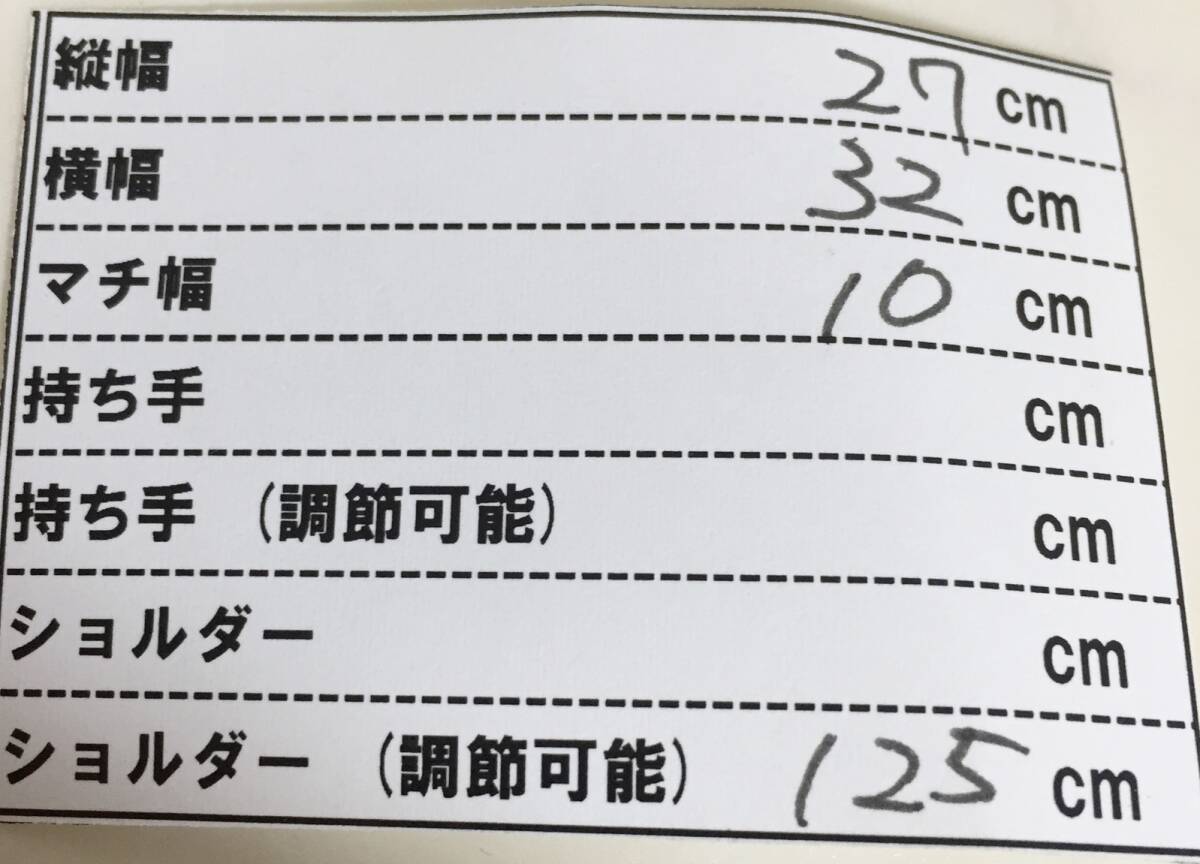 縦幅 27 cm
横幅 32 cm
マチ幅 10 cm
持ち手 cm
持ち手 (調節可能) cm
ショルダー cm
ショルダー (調節可能) 125 cm